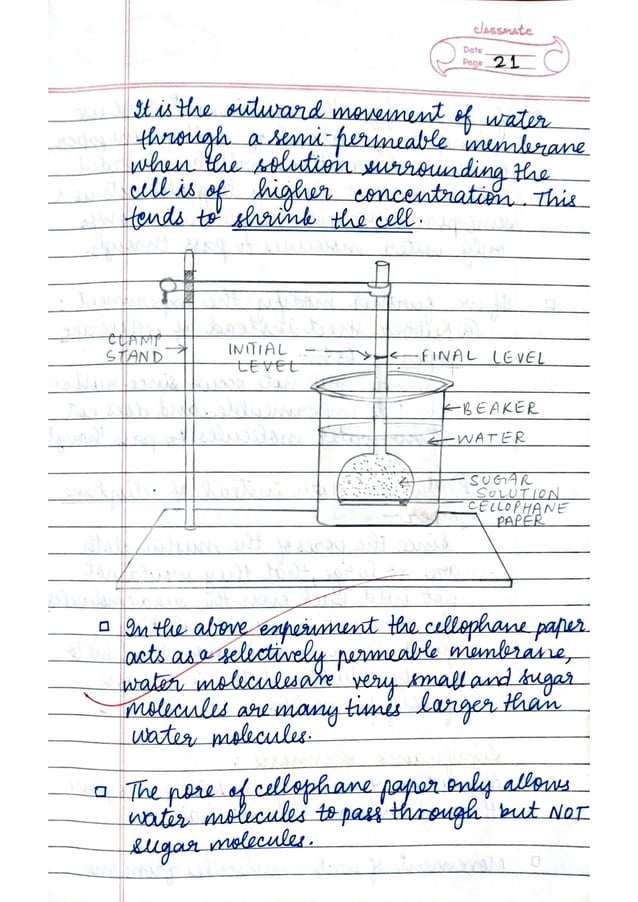 classmate
Date
Page 21
It is the outward movement of water
through a semi-permeable membrane
when the solution surrounding the
cell is of higher concentration. This
tends to shrink the cell.
CLAMP
STAND
INITIAL
LEVEL
FINAL LEVEL
BEAKER
WATER
SUGAR
SOLUTION
CELLOPHANE
PAPER
In the above experiment the cellophane paper
acts as a selectively permeable membrane,
water molecules are very small and sugar
molecules are many times larger than
water molecules.
The pore of cellophane paper only allows
water molecules to pass through but NOT
sugar molecules.